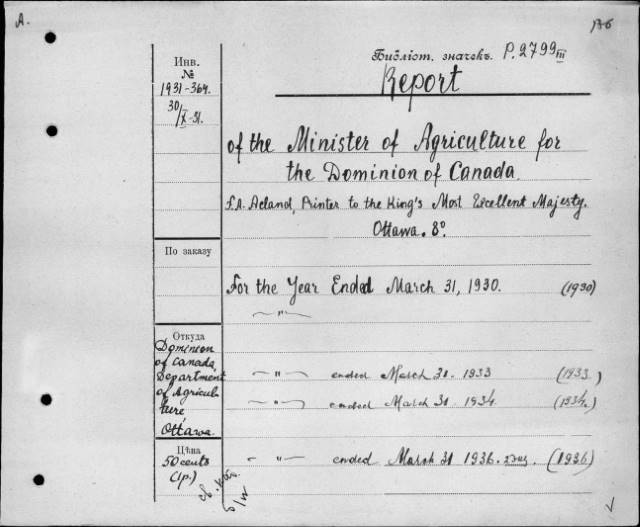 A.
136
Инв.
№
1931-364.
30/X-31.
Библіот. значекъ. P.2799 III
Report
of the Minister of Agriculture for
the Dominion of Canada.
F.A. Acland, Printer to the King's Most Excellent Majesty.
Ottawa. 8°.
По заказу
For the Year Ended March 31, 1930. (1930)
— " —
Откуда
Dominion
of Canada,
Department
of Agricul-
ture
Ottawa.
— " — ended March 31. 1933 (1933.)
— " — ended March 31 1934. (1934.)
Цѣна
50 cents
(1p.)
— " — ended March 31 1936. (1936)